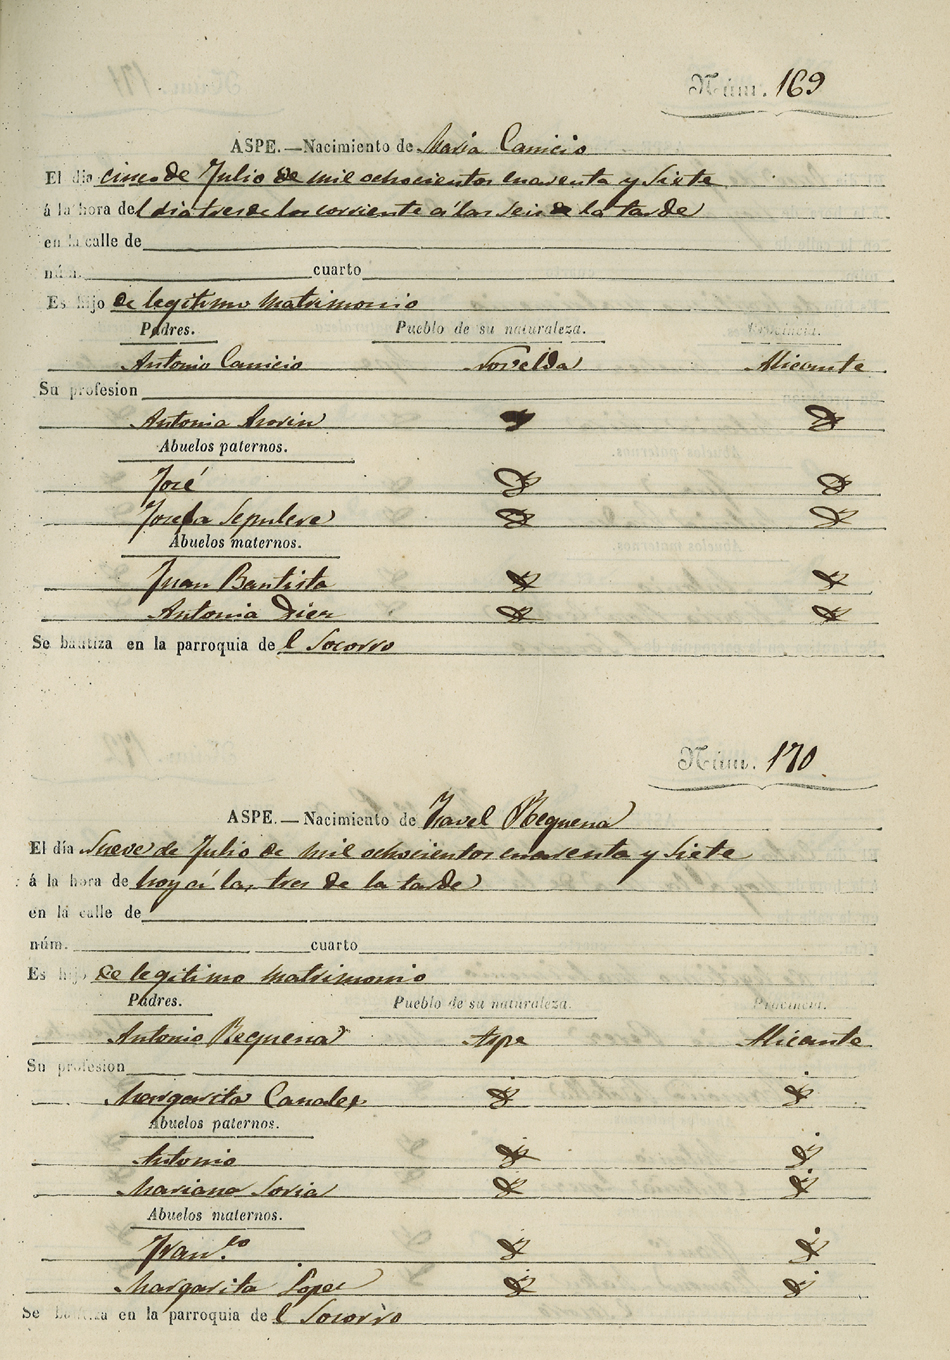 Núm. 169
ASPE.—Nacimiento de Maria Canicio
El día cinco de Julio de mil ochocientos cuarenta y Siete
á la hora del dia tres de los corriente á las seis de la tarde
en la calle de
núm. cuarto
Es hijo de legitimo matrimonio
Padres. Pueblo de su naturaleza. Provincia.
Antonio Canicio Novelda Alicante
Su profesion
Antonia
Abuelos paternos.
José
Josefa Sepulcre
Abuelos maternos.
Juan Bautista
Antonia Diez
Se bautiza en la parroquia del Socorro
Núm. 170
ASPE.—Nacimiento de Requena
El día Nueve de Julio de mil ochocientos cuarenta y Siete
á la hora de hoy á las tres de la tarde
en la calle de
núm. cuarto
Es hijo de legitimo matrimonio
Padres. Pueblo de su naturaleza. Provincia.
Antonio Requena Aspe Alicante
Su profesion
Margarita Canales
Abuelos paternos.
Antonio
Mariana Soria
Abuelos maternos.
Fran.co
Margarita Lopez
Se bautiza en la parroquia del Socorro